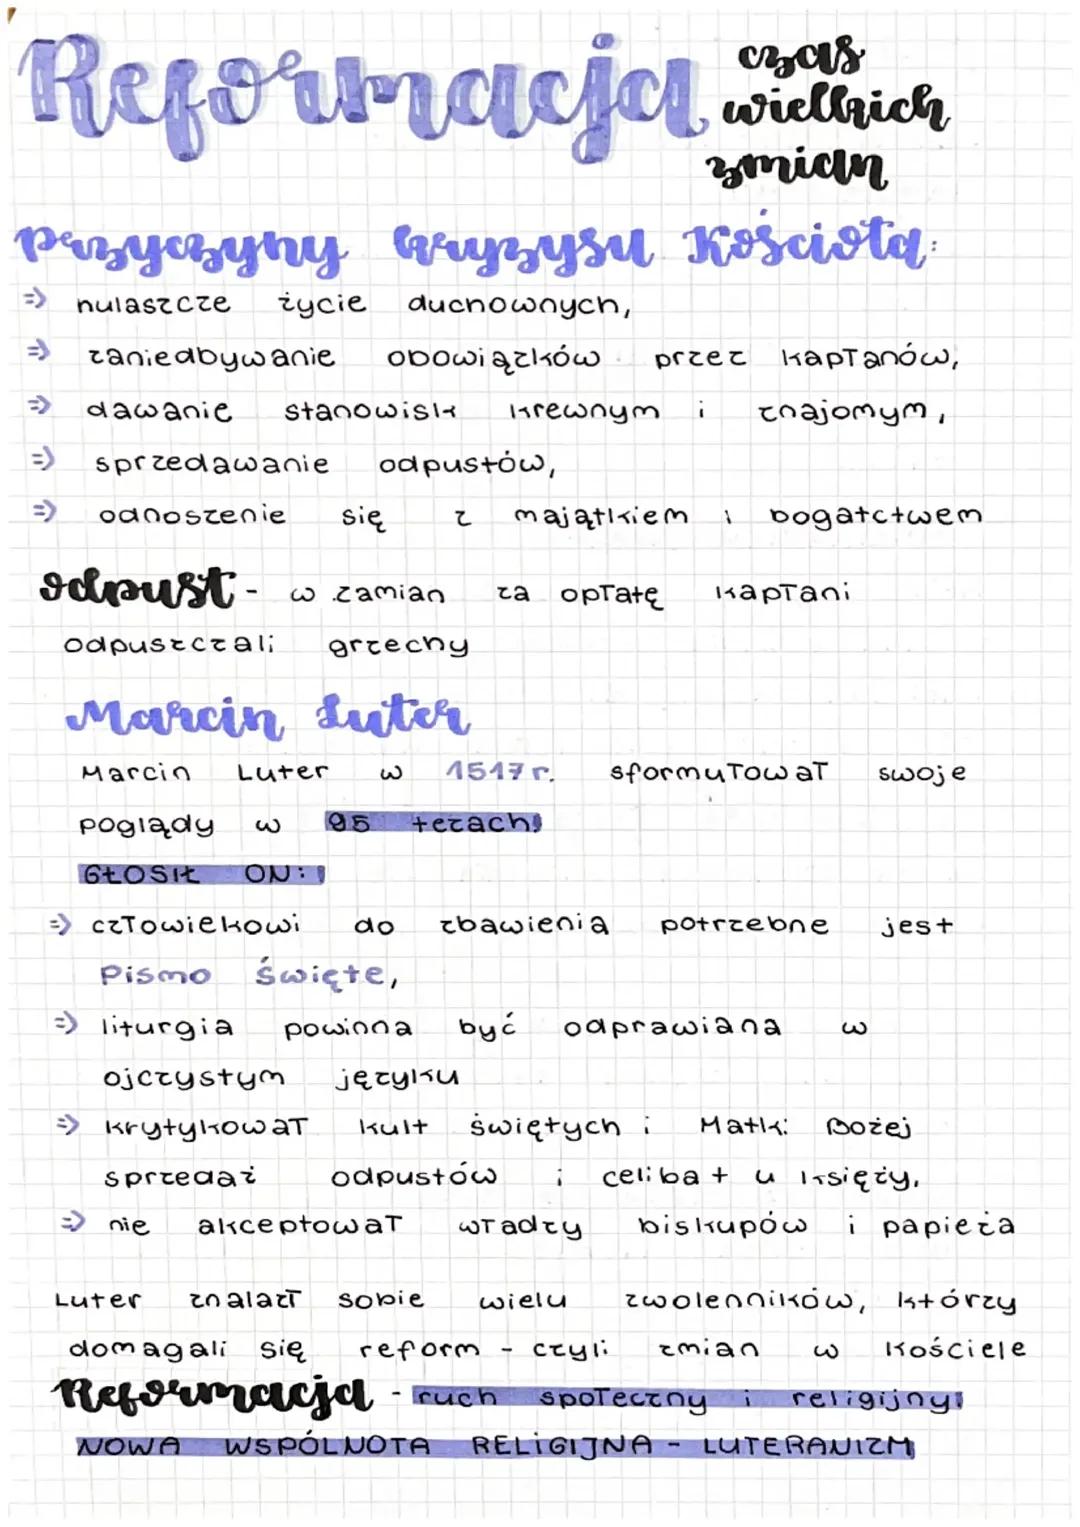 Reformacja czas
wielkich
zmian
Przyczyny kryzysu Kościoła:
=> hulaszcze życie duchownych,
=> zaniedbywanie obowiązków przez kapłanów,
=> dawanie stanowisk krewnym i znajomym,
=> sprzedawanie odpustów,
=> odnoszenie się z majątkiem i bogatctwem
Odpust - w zamian za opłatę kapłani
odpuszczali grzechy
Marcin Luter
Marcin Luter w 1517 r. sformułował swoje
poglądy w 95 tezach!
GŁOSIŁ ON:
=> człowiekowi do zbawienia potrzebne jest
Pismo Święte,
=> liturgia powinna być odprawiana w
ojczystym języku
=> krytykował kult świętych i Matki Bożej
sprzedaż odpustów i celibat u księży,
=> nie akceptował władzy biskupów i papieża
Luter znalazł sobie wielu zwolenników, którzy
domagali się reform - czyli zmian w Kościele
Reformacja - ruch społeczny i religijny!
NOWA WSPÓLNOTA RELIGIJNA - LUTERANIZM